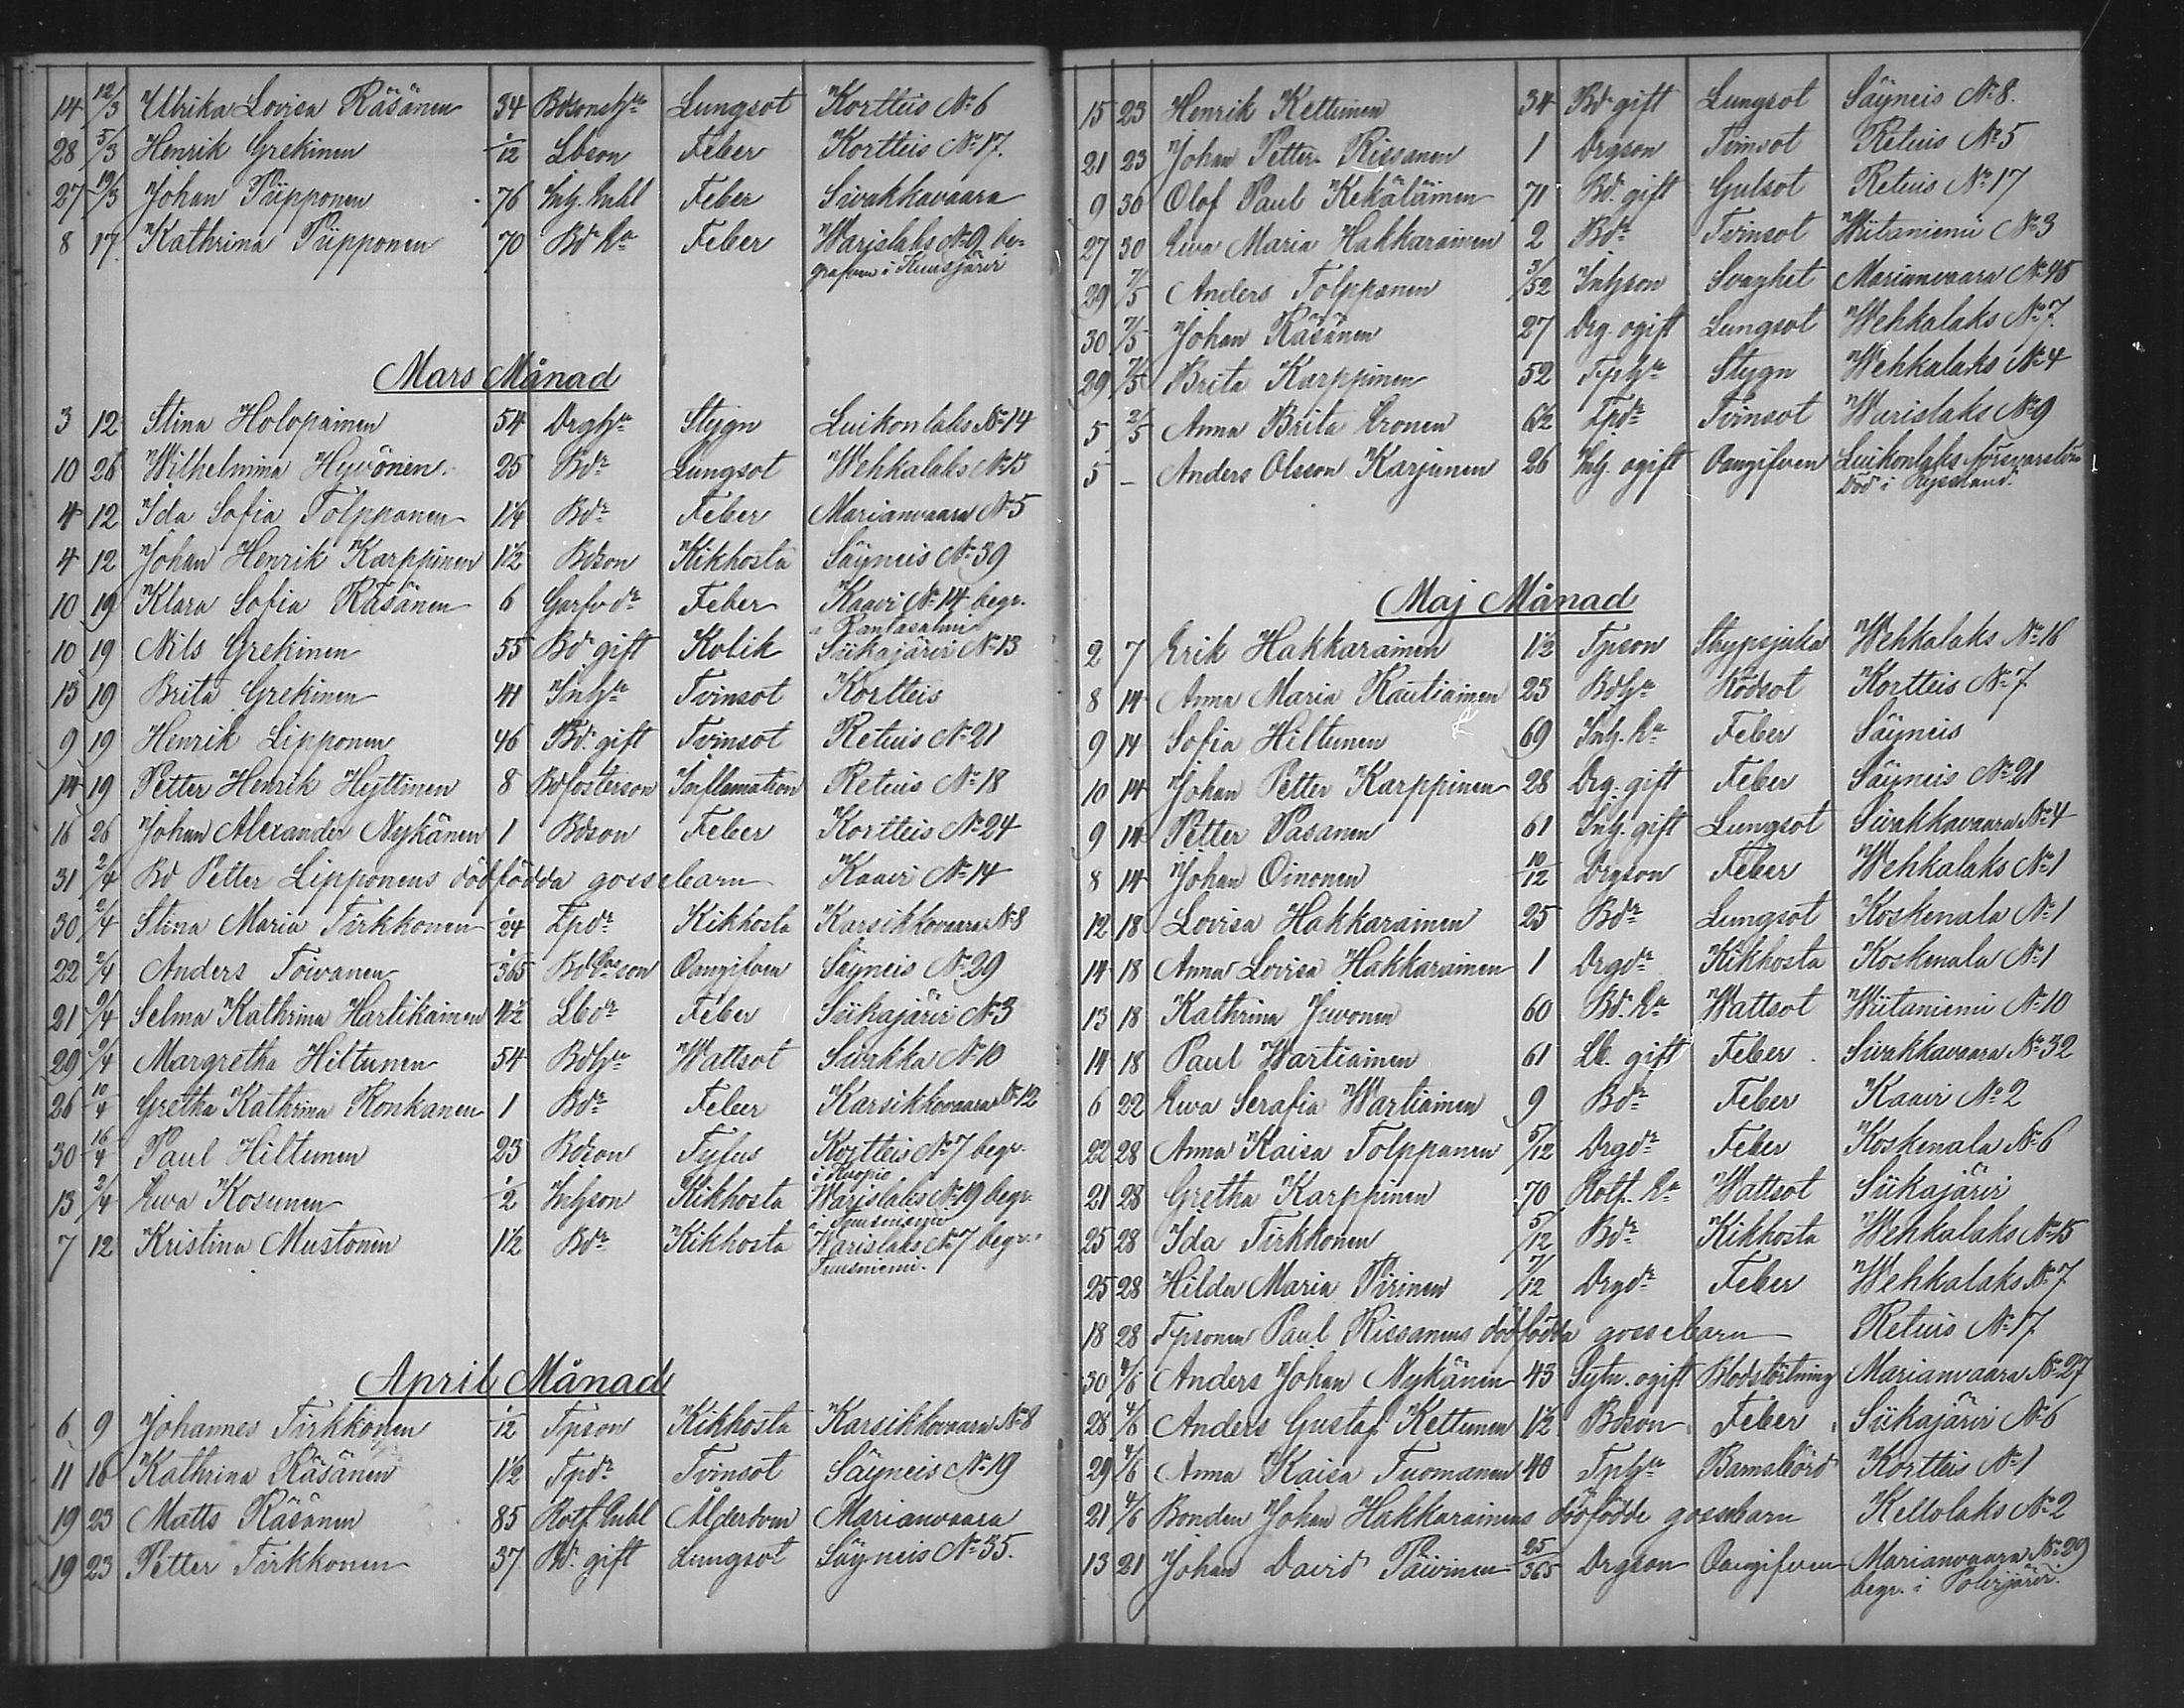 14 12/3 Ulrika Lovisa Räsänen 34 Bdsonshu Lungsot Kortteis No 6
28 5/3 Henrik Grekinen 1/12 Lbson Feber Kortteis No 17.
27 19/3 Johan Püpponen 76 Inh. Enkl Feber Sivakkavaara
8 17. Kathrina Püpponen 70 Bd Ea Feber Warislaks No 9, be-
grafven i Kuusjärvi
Mars Månad
3 12 Stina Holopainen 54 Drghu Stygn Luikonlaks No 14
10 26 Wilhelmina Hyvönen 25 Bdr Lungsot Wehkalaks No 13
4 12 Ida Sofia Tolppanen 1 1/4 Bdr Feber Marianvaara No 5
4 12 Johan Henrik Karppinen 1 1/2 Bdson Kikhosta Säyneis No 39
10 19 Klara Sofia Räsänen 6 Garfvdr Feber Kaavi No 14 begr.
i Rantasalmi
10 19 Nils Grekinen 55 Bd gift Kolik Siikajärvi No 13
13 19 Brita Grekinen 41 Inhu Tvinsot Kortteis
9 19 Henrik Lipponen 46 Bd. gift Tvinsot Retuis No 21
14 19 Petter Henrik Hyttinen 8 Bdfosterson Inflamation Retuis No 18
16 26 Johan Alexander Nykänen 1 Bdson Feber Kortteis No 24
31 2/4 Bd Petter Lipponens dödfödda gossebarn Kaavi No 14
30 2/4 Stina Maria Tirkkonen 1/24 Tpdr Kikhosta Karsikkovaara No 8
22 2/4 Anders Toivanen 1/365 Bd son Oangifven Säyneis No 29
21 9/4 Selma Kathrina Hartikainen 4 1/2 Lbdr Feber Siikajärvi No 3
29 9/4 Margretha Hiltunen 54 Bdhu Wattsot Sivakka No 10
26 10/4 Gretha Kathrina Konkanen 1 Bdr Feber Karsikkovaara No 12
30 16/4 Paul Hiltunen 23 Bdson Tyfus Kortteis No 7 begr.
i Kuopio
13 2/4 Ewa Kosunen 1/2 Inhson Kikhosta Warislaks No 19 begr.
i Tuusniemi
7 12 Kristina Mustonen 1 1/2 Bdr Kikhosta Warislaks No 7 begr.
Tuusniemi.
April Månad
6 9 Johannes Tirkkonen 1/12 Tpson Kikhosta Karsikkovaara No 8
11 16 Kathrina Räsänen 1 1/2 Tpdr Tvinsot Säyneis No 19
19 23 Matts Räsänen 85 Rotf. Enkl Ålderdom Marianvaara
19 23 Petter Tirkkonen 37 Bd. gift Lungsot Säyneis No 35.
15 23 Henrik Kettunen 34 Bd gift Lungsot Säyneis No 8.
21 23 Johan Petter Rissanen 1 Drgson Tvinsot Retuis No 5
9 30 Olof Paul Kekäläinen 71 Bd. gift Gulsot Retuis No 17
27 30 Ewa Maria Hakkarainen 2 Bdr Tvinsot Wiitaniemi No 3
29 7/5 Anders Tolppanen 3/52 Inhson Svaghet Marianvaara No 45
30 7/5 Johan Räsänen 27 Drg. ogift Lungsot Wehkalaks No 7.
29 7/5 Brita Karppinen 52 Tphu Stygn Wehkalaks No 4
5 2/5 Anna Brita Eronen 6 1/2 Tpdr Tvinsot Warislaks No 9
5 - Anders Olsson Karjunen 26 Inh. ogift Oangifven Luikonlaks
Död i Ryssland.
Maj Månad
2 7 Erik Hakkarainen 1 1/2 Tpson Strypsjuka Wehkalaks No 16
8 14 Anna Maria Rautiainen 23 Bdhu Rödsot Kortteis No 7.
9 14 Sofia Hiltunen 69 Inh. Ea Feber Säyneis
10 14 Johan Petter Karppinen 28 Drg. gift Feber Säyneis No 21
9 14 Petter Pasanen 61 Inh. gift Lungsot Sivakkavaara No 4
8 14 Johan Oinonen 10/12 Drgson Feber Wehkalaks No 1
12 18 Lovisa Hakkarainen 25 Bdr Lungsot Koskenala No 1
14 18 Anna Lovisa Hakkarainen 1 Drgdr Kikhosta Koskenala No 1
13 18 Kathrina Juvonen 60 Bd. Ea Wattsot Wiitaniemi No 10
14 18 Paul Wartiainen 61 Lb. gift Feber Sivakkavaara No 32
6 22 Ewa Serafia Wartiainen 9 Bdr Feber Kaavi No 2
22 28 Anna Kaisa Tolppanen 5/12 Drgdr Feber Koskenala No 6
21 28 Gretha Karppinen 70 Rotf. Ea Wattsot Siikajärvi
25 28 Ida Tirkkonen 5/12 Bdr Kikhosta Wehkalaks No 15
25 28 Hilda Maria Pirinen 7/12 Drgdr Feber Wehkalaks No 7
18 28 Tpsonen Paul Rissanens dödfödda gossebarn Retuis No 17.
30 4/6 Anders Johan Nykänen 43 Sytn. ogift Blodstörtning Marianvaara No 27
28 4/6 Anders Gustaf Kettunen 1 1/2 Bdson Feber Siikajärvi No 6
29 4/6 Anna Kaisa Tuomanen 40 Tphu Barnsbörd Kortteis No 1
21 4/6 Bonden Johan Hakkarainens dödfödde gossebarn Keltolaks No 2
13 21 Johan David Päivinen 25/365 Drgson Oangifven Marianvaara No 29
begr. i Polvijärvi.